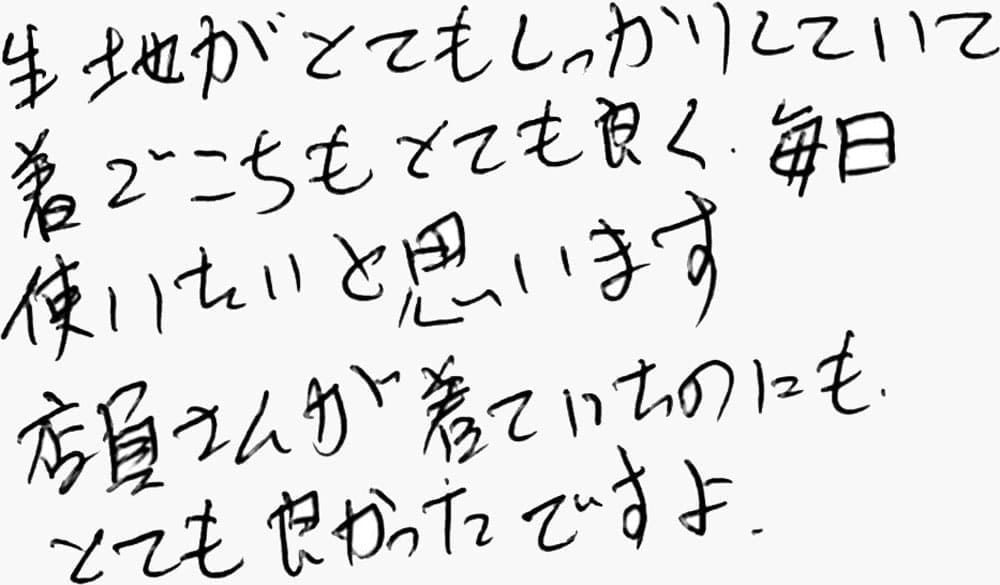 生地がとてもしっかりしていて
着ごこちもとても良く、毎日
使いたいと思います
店員さんが着ていたのにも、
とても良かったですよ。